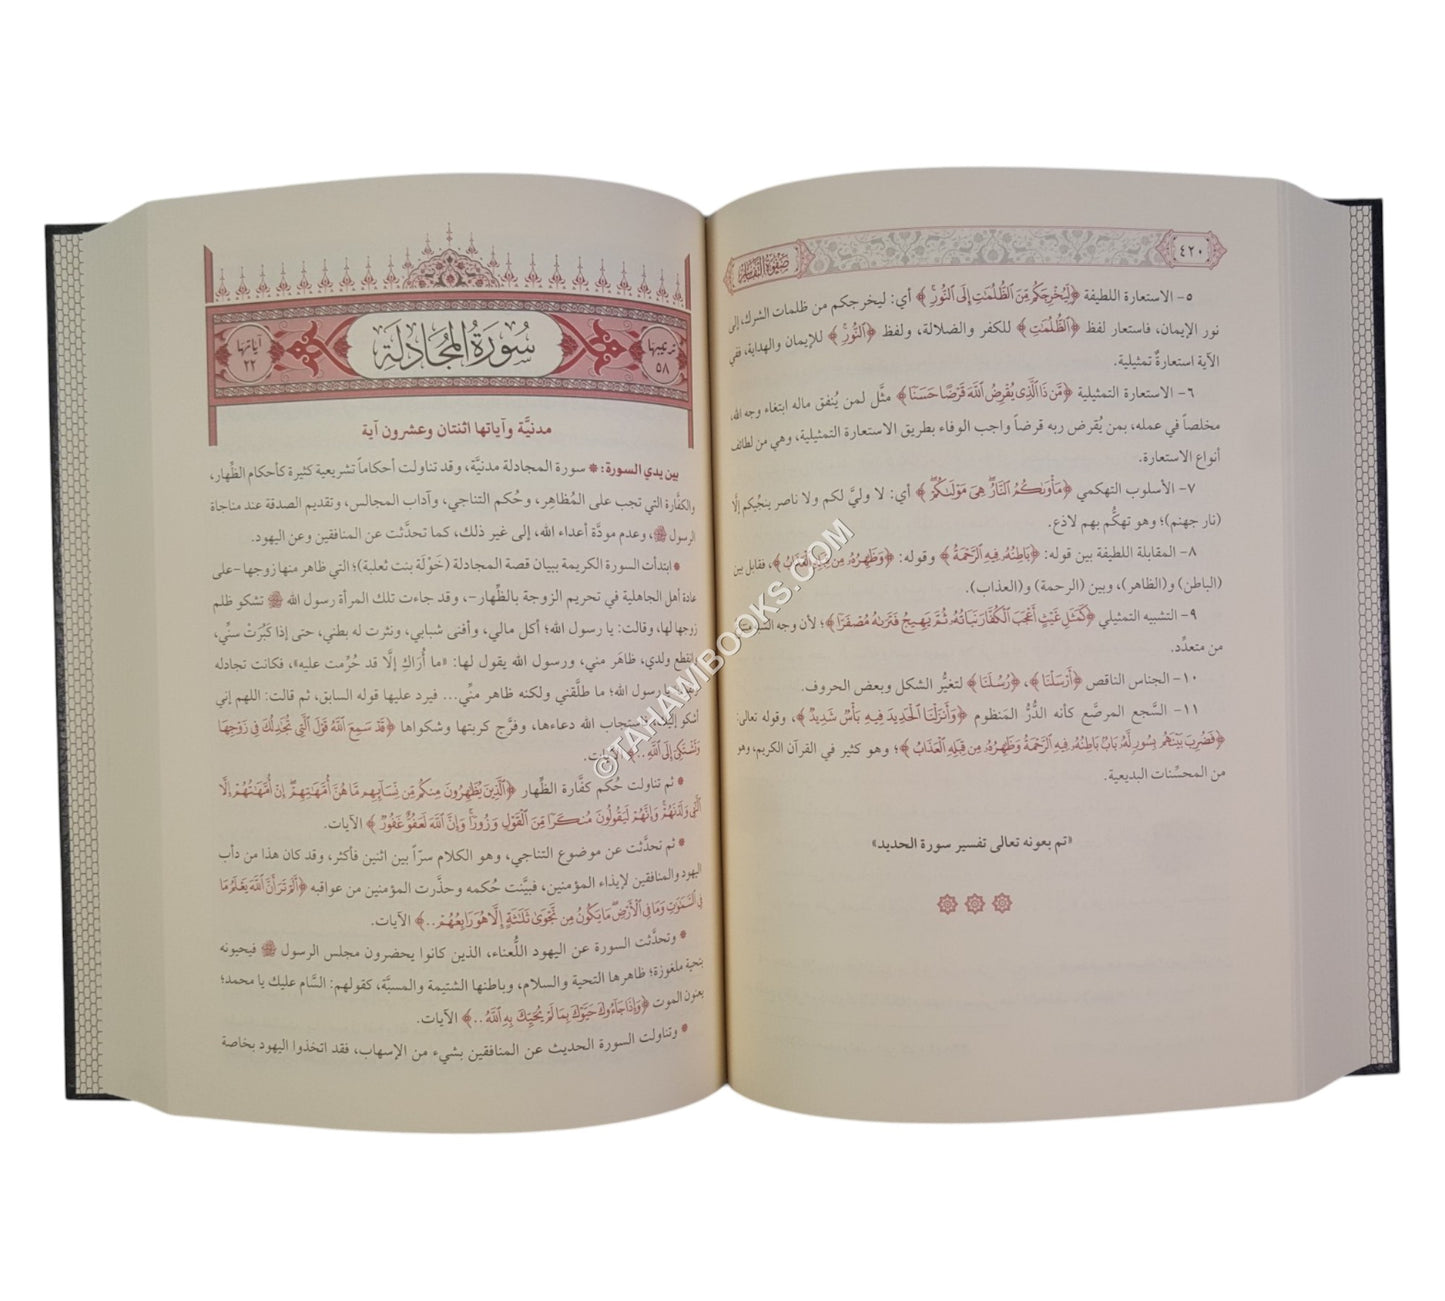 ٤٢٠
صفوة التفاسير
٥- الاستعارة اللطيفة ﴿لِّيُخْرِجَكُم مِّنَ ٱلظُّلُمَٰتِ إِلَى ٱلنُّورِ﴾ أي: ليخرجكم من ظلمات الشرك، إلى
نور الإيمان، فاستعار لفظ ﴿ٱلظُّلُمَٰتِ﴾ للكفر والضلالة، ولفظ ﴿ٱلنُّورِ﴾ للإيمان والهداية، ففي
الآية استعارةٌ تمثيلية.
٦- الاستعارة التمثيلية ﴿مَّن ذَا ٱلَّذِى يُقْرِضُ ٱللَّهَ قَرْضًا حَسَنًا﴾ مثَّل لمن يُنفق ماله ابتغاء وجه الله،
مخلصاً في عمله، بمن يُقرض ربه قرضاً واجب الوفاء بطريق الاستعارة التمثيلية، وهي من لطائف
أنواع الاستعارة.
٧- الأسلوب التهكمي ﴿مَأْوَىٰكُمُ ٱلنَّارُ هِىَ مَوْلَىٰكُمْ﴾ أي: لا وليَّ لكم ولا ناصر ينجيكم إلَّا
(نار جهنم)؛ وهو تهكُّم بهم لاذع.
٨- المقابلة اللطيفة بين قوله: ﴿بَاطِنُهُۥ فِيهِ ٱلرَّحْمَةُ﴾ وقوله: ﴿وَظَٰهِرُهُۥ مِن قِبَلِهِ ٱلْعَذَابُ﴾، فقابل بين
(الباطن) و(الظاهر)، وبين (الرحمة) و(العذاب).
٩- التشبيه التمثيلي ﴿كَمَثَلِ غَيْثٍ أَعْجَبَ ٱلْكُفَّارَ نَبَاتُهُۥ ثُمَّ يَهِيجُ فَتَرَىٰهُ مُصْفَرًّا﴾؛ لأن وجه
من متعدِّد.
١٠- الجناس الناقص ﴿أَرْسَلْنَا﴾، ﴿رُسُلَنَا﴾ لتغيُّر الشكل وبعض الحروف.
١١- السَّجع المرصَّع كأنه الدُّرُّ المَنظوم ﴿وَأَنزَلْنَا ٱلْحَدِيدَ فِيهِ بَأْسٌ شَدِيدٌ﴾، وقوله تعالى:
﴿فَضُرِبَ بَيْنَهُم بِسُورٍ لَّهُۥ بَابٌ بَاطِنُهُۥ فِيهِ ٱلرَّحْمَةُ وَظَٰهِرُهُۥ مِن قِبَلِهِ ٱلْعَذَابُ﴾؛ وهو كثير في القرآن الكريم، وهو
من المحسِّنات البديعية.
«تم بعونه تعالى تفسير سورة الحديد»
ترتيبها ٥٨
سُورَةُ المُجَادلَة
آياتها ٢٢
مدنيَّة وآياتها اثنتان وعشرون آية
بين يدي السورة: * سورة المجادلة مدنيَّة، وقد تناولت أحكاماً تشريعية كثيرة كأحكام الظِّهار،
والكفَّارة التي تجب على المُظاهِر، وحُكم التناجي، وآداب المجالس، وتقديم الصدقة عند مناجاة
الرسول ﷺ، وعدم مودَّة أعداء الله، إلى غير ذلك، كما تحدَّثت عن المنافقين وعن اليهود.
* ابتدأت السورة الكريمة ببيان قصة المجادلة (خَوْلَة بنت ثعلبة)؛ التي ظاهر منها زوجها -على
عادة أهل الجاهلية في تحريم الزوجة بالظِّهار-، وقد جاءت تلك المرأة رسول الله ﷺ تشكو ظلم
زوجها لها، وقالت: يا رسول الله؛ أكل مالي، وأفنى شبابي، ونثرت له بطني، حتى إذا كَبُرَتْ سنِّي،
وانقطع ولدي، ظاهَر مني، ورسول الله يقول لها: «ما أُرَاكِ إلَّا قد حُرِّمت عليه»، فكانت تجادله
يا رسول الله؛ ما طلَّقني ولكنه ظاهر منِّي... فيرد عليها قوله السابق، ثم قالت: اللهم إني
أشكو إليك، فاستجاب الله دعاءها، وفرَّج كربتها وشكواها ﴿قَدْ سَمِعَ ٱللَّهُ قَوْلَ ٱلَّتِى تُجَٰدِلُكَ فِى زَوْجِهَا
وَتَشْتَكِىٓ إِلَى ٱللَّهِ..﴾ الآيات.
* ثم تناولت حُكم كفَّارة الظِّهار ﴿ٱلَّذِينَ يُظَٰهِرُونَ مِنكُم مِّن نِّسَآئِهِم مَّا هُنَّ أُمَّهَٰتِهِمْ إِنْ أُمَّهَٰتُهُمْ إِلَّا
ٱلَّٰٓـِٔى وَلَدْنَهُمْ وَإِنَّهُمْ لَيَقُولُونَ مُنكَرًا مِّنَ ٱلْقَوْلِ وَزُورًا وَإِنَّ ٱللَّهَ لَعَفُوٌّ غَفُورٌ﴾ الآيات.
* ثم تحدَّثت عن موضوع التناجي، وهو الكلام سرّاً بين اثنين فأكثر، وقد كان هذا من دأب
اليهود والمنافقين لإيذاء المؤمنين، فبيَّنت حُكمه وحذَّرت المؤمنين من عواقبه ﴿أَلَمْ تَرَ أَنَّ ٱللَّهَ يَعْلَمُ مَا
فِى ٱلسَّمَٰوَٰتِ وَمَا فِى ٱلْأَرْضِ مَا يَكُونُ مِن نَّجْوَىٰ ثَلَٰثَةٍ إِلَّا هُوَ رَابِعُهُمْ..﴾ الآيات.
* وتحدَّثت السورة عن اليهود اللُّعناء، الذين كانوا يحضرون مجلس الرسول ﷺ فيحيونه
بتحية ملغوزة؛ ظاهرها التحية والسلام، وباطنها الشتيمة والمسبَّة، كقولهم: السَّام عليك يا محمد؛
يعنون الموت ﴿وَإِذَا جَآءُوكَ حَيَّوْكَ بِمَا لَمْ يُحَيِّكَ بِهِ ٱللَّهُ..﴾ الآيات.
* وتناولت السورة الحديث عن المنافقين بشيء من الإسهاب، فقد اتخذوا اليهود بخاصة
©TAHAWIBOOKS.COM